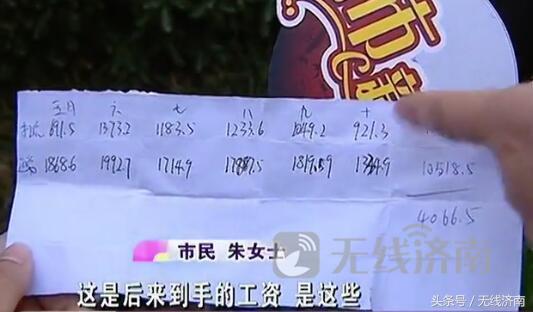 五月 六 七 八 九 十
891.5 1373.2 1183.5 1233.6 1049.2 921.3
1868.6 1992.7 1714.9 1819.59 10518.5
4066.5
市民 朱女士
无线济南
这是后来到手的工资 是这些
头条号／无线济南